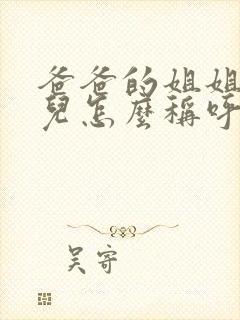 爸爸的姐姐
兒怎麼稱呼
吴寄